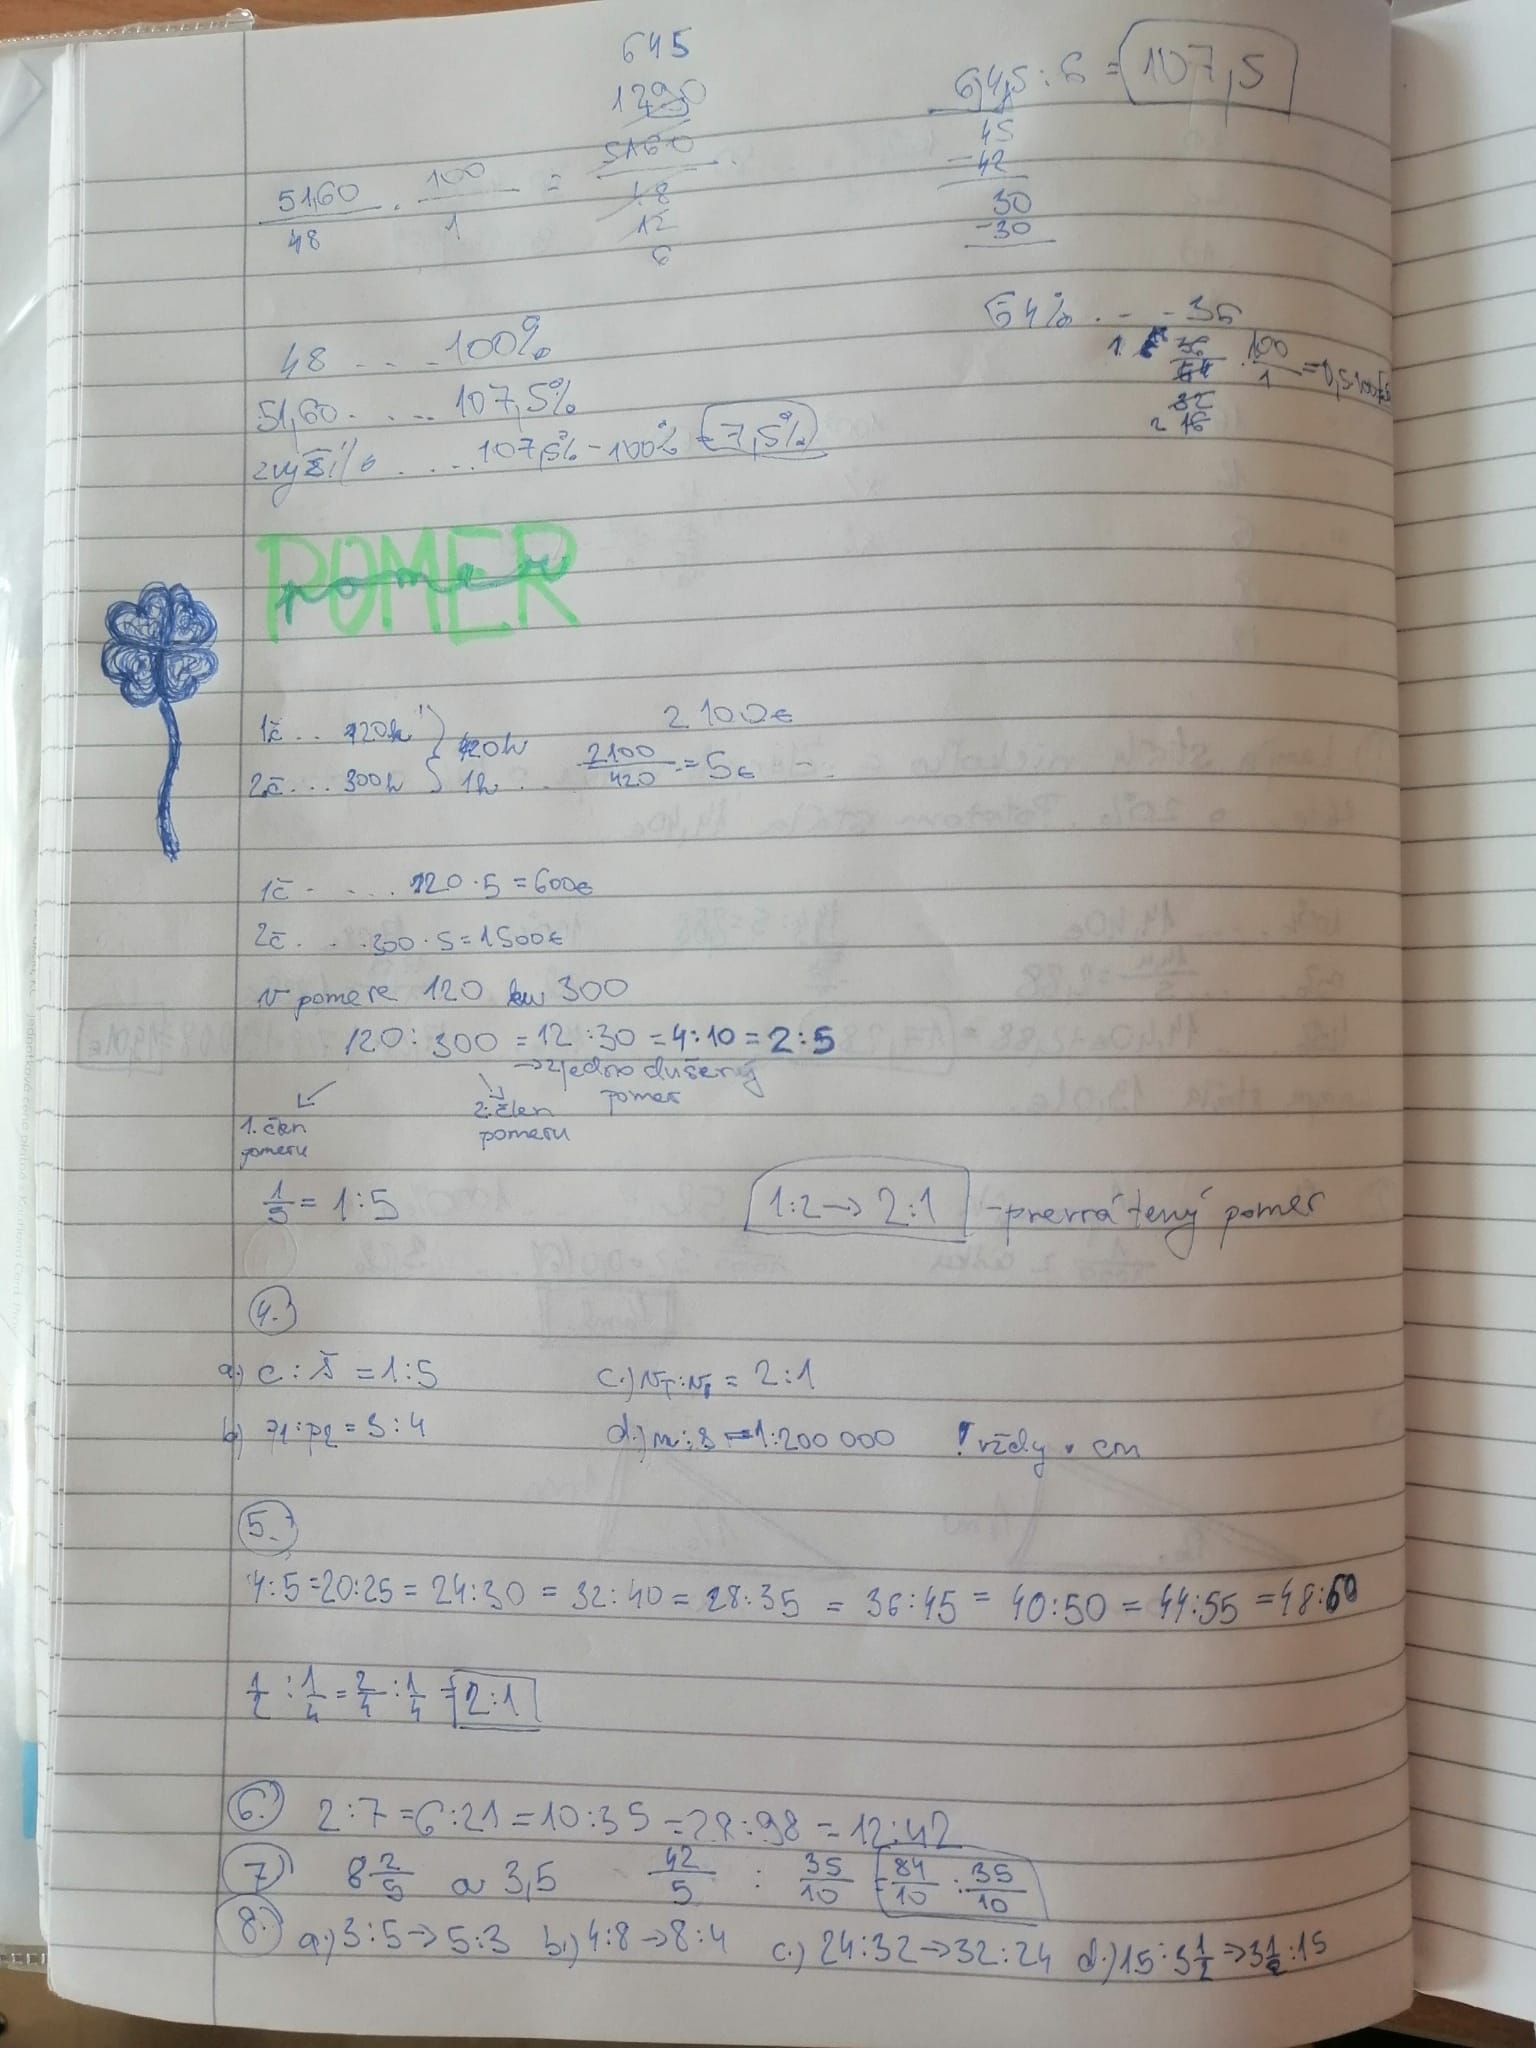 645
1290
5160
51,60/48 . 100/1 = 5160/48
12
6
64,5 : 6 = 107,5
45
-42
30
-30
64% . - - 36
48 . . . 100%
51,60 . . . . 107,5%
zvýšila . . . . 107,5% - 100% = 7,5%
POMER
pomer
1č . . 120h } 420h
2č . . . 300h } 1h . . .
2100€
2100/420 = 5€
1č . . . . 120 . 5 = 600€
2č . . . 300 . 5 = 1500€
v pomere 120 ku 300
120 : 300 = 12 : 30 = 4:10 = 2:5
→ zjednodušený pomer
1. člen pomeru
2. člen pomeru
1/5 = 1:5
1:2 → 2:1 - prevrátený pomer
4.)
a.) c : š = 1:5
c.) vT : v1 = 2:1
b) p1 : p2 = 3:4
d.) m : s = 1:200 000 ! vždy v cm
5.)
4:5 = 20:25 = 24:30 = 32:40 = 28:35 = 36:45 = 40:50 = 44:55 = 48:60
1/2 : 1/4 = 2/4 : 1/4 = 2:1
6.) 2:7 = 6:21 = 10:35 = 28:98 = 12:42
7.) 8 2/5 a 3,5 42/5 : 35/10 = 84/10 : 35/10
8.) a.) 3:5 → 5:3 b.) 4:8 → 8:4 c.) 24:32 → 32:24 d.) 15:3 1/2 → 3 1/2 : 15